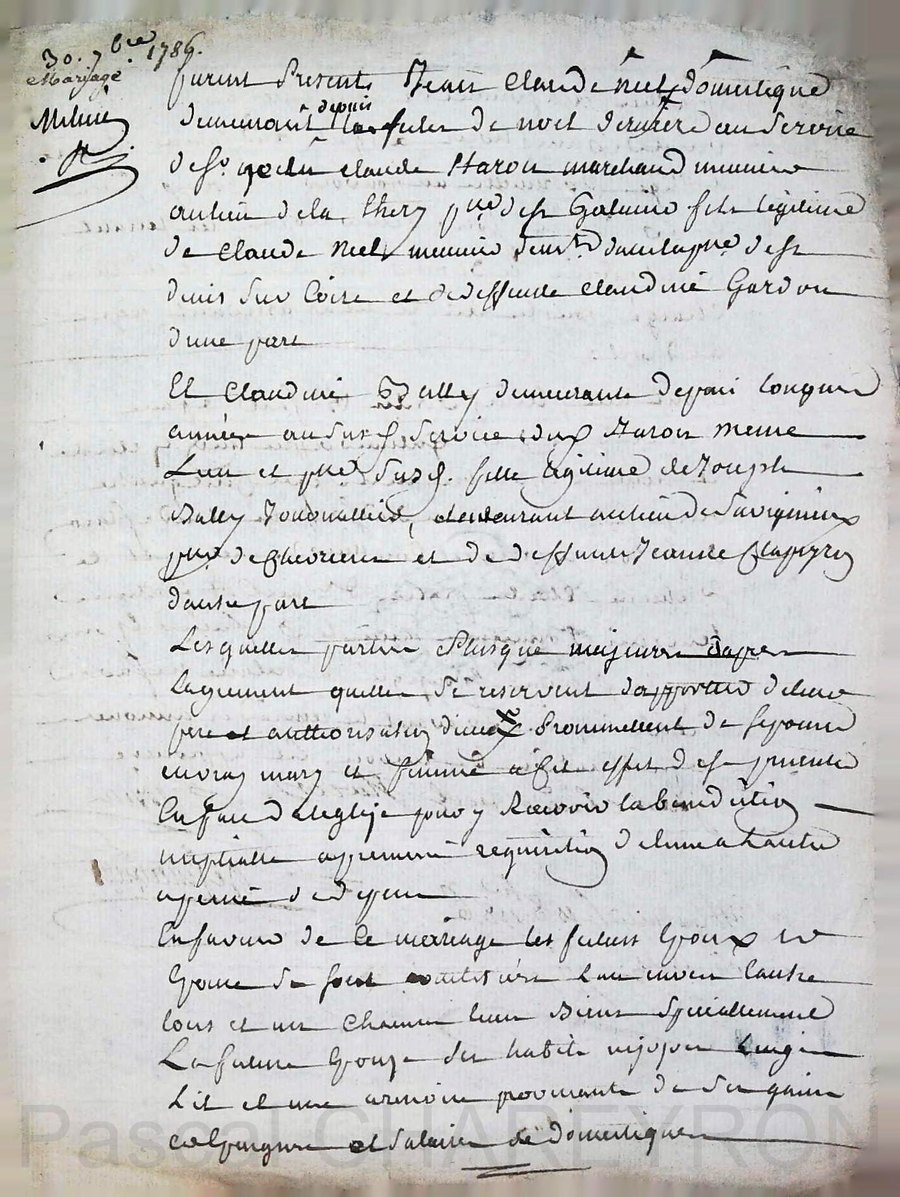 30. 7bre 1786.
Mariage
furent Presents Jean Claude Neel domestique
demeurant depuis les fetes de noel dernier au service
de Sr Claude Haron marchand meunier
au lieu de la they psse de St Galmier fils legitime
de Claude Neel meunier demt dans la psse de St
denis sur Coise et de deffunte Claudine Gardon
d'une part
Et Claudine Bally demeurante depuis longues
années au susd service dud Haron meme
Lieu et psse susd. fille legitime de Joseph
Bally Journallier, demeurant au lieu de Savignieux
psse de Chevrieres et de deffunte Jeanne Clapeyron
d'autre part
Lesquelles parties Plusque majeures
Lagrement quelles se reservent de leur
pere et authorisation d'iceux Promettent de sepouser
en vray mary et femme a cet effet de se presenter
En face d'eglize pour y Recevoir la benediction
nuptialle a premiere requisition de l'une a l'autre
a peine de depens
En faveur de ce mariage les futurs Epoux et
Epouse se sont constitués l'un envers l'autre
tous et un chacun leur Biens specialement
La future Epouse ses habits nipes Linges
Lit et une armoire provenants de ses gains
epargnes et salaires de domestique
Pascal CHAREYRON